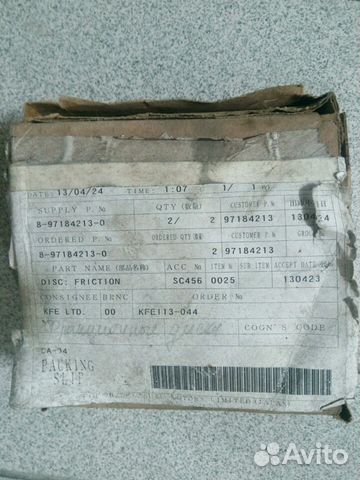 DATE: 13/04/24 TIME: 1:07 1/ 1
SUPPLY P. No QTY (数量) CUSTOMER P. N
8-97184213-0 2/ 2 97184213
ORDERED P. No ORDERED QTY CUSTOMER P. N
8-97184213-0 2 97184213
PART NAME (部品名称) ACC No ITEM № SUB ITEM ACCEPT DATE
DISC: FRICTION SC456 0025 130423
CONSIGNEE BRNC ORDER No
KFE LTD. 00 KFE113-044
Фрикционные диски COGN'S CODE
CA-04
PACKING
SLIP
MOTORS LIMITED (JAPAN)
Avito